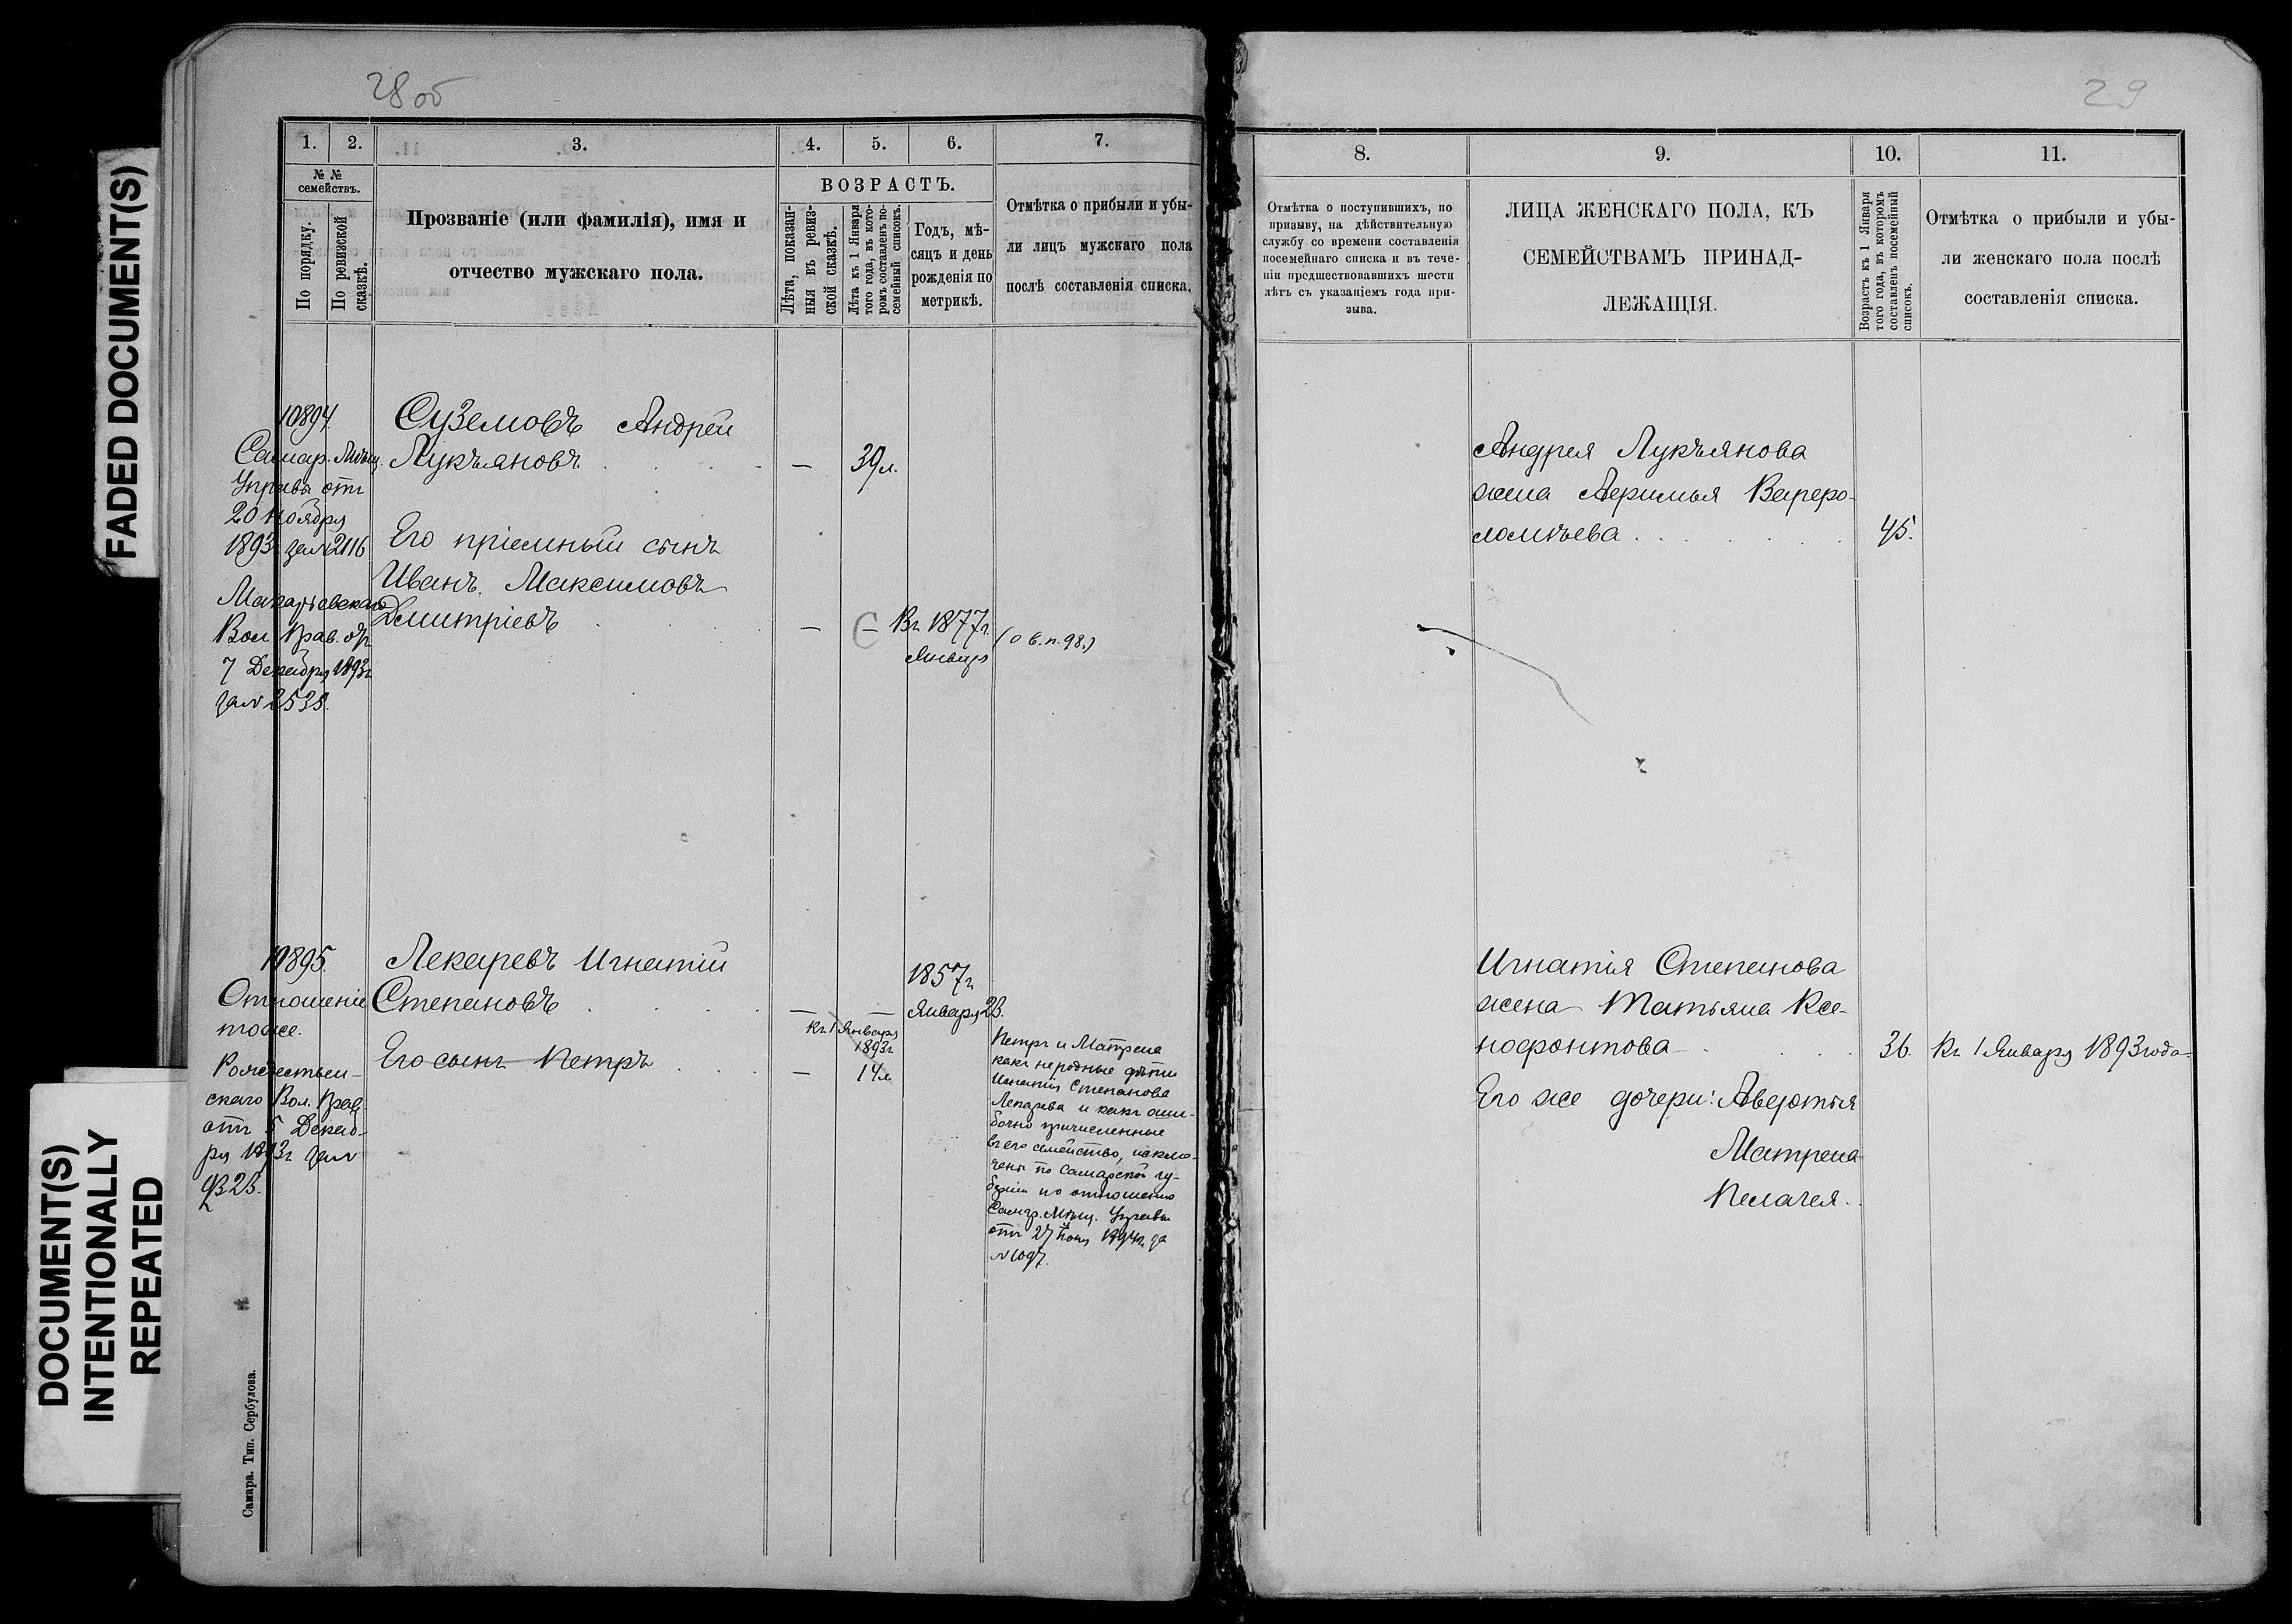 28 об
FADED DOCUMENT(S)
DOCUMENT(S)
INTENTIONALLY
REPEATED
1.
2.
3.
4.
5.
6.
7.
№ №
семействъ.
По порядку.
По ревизской
сказкѣ.
Прозваніе (или фамилія), имя и
отчество мужскаго пола.
ВОЗРАСТЪ.
Лѣта, показан-
ныя въ ревиз-
ской сказкѣ.
Лѣта къ 1 Января
того года, въ кото-
ромъ составленъ по-
семейный списокъ.
Годъ, мѣ-
сяцъ и день
рожденія по
метрикѣ.
Отмѣтка о прибыли и убы-
ли лицъ мужскаго пола
послѣ составленія списка.
10894.
Самар. Мѣщ.
Управы отъ
20 Ноября
1893г за № 2116
Макарьевскаго
Вол. Прав. отъ
7 Декабря 1893г
за № 2538.
Суземовъ Андрей
Лукъяновъ
— 39 л.
Его пріемный сынъ
Иванъ Максимовъ
Дмитріевъ
— — Въ 1877г.
Января
(о в.п. 98.)
10895.
Отношеніе
тоже.
Рождествен-
скаго Вол. Прав.
отъ 5 Декаб-
ря 1893г за №
Лекаревъ Игнатій
Степановъ
— — 1857г
Января 23.
Къ 1 Января
1893г
Его сынъ Петръ
— 14 л.
Петръ и Матрена
какъ неродные дѣти
Игнатія Степанова
Лекарева и какъ оши-
бочно причисленные
въ его семейство, исклю-
чены по Самарской гу-
берніи по отношенію
Самар. Мѣщ. Управы
отъ 27 1894г за
№ 1097.
Самара. Тип. Сербулова.
29
8.
9.
10.
11.
Отмѣтка о поступившихъ, по
призыву, на дѣйствительную
службу со времени составленія
посемейнаго списка и въ тече-
ніи предшествовавшихъ шести
лѣтъ съ указаніемъ года при-
зыва.
ЛИЦА ЖЕНСКАГО ПОЛА, КЪ
СЕМЕЙСТВАМЪ ПРИНАД-
ЛЕЖАЩІЯ.
Возрастъ къ 1 Января
того года, въ которомъ
составленъ посемейный
списокъ.
Отмѣтка о прибыли и убы-
ли женскаго пола послѣ
составленія списка.
Андрея Лукъянова
жена Варфро-
ломѣева 45.
Игнатія Степанова
жена Татьяна Ксе-
нофонтова 36. Къ 1 Января 1893 года.
Его же дочери: Авдотья
Матрена
Пелагея.